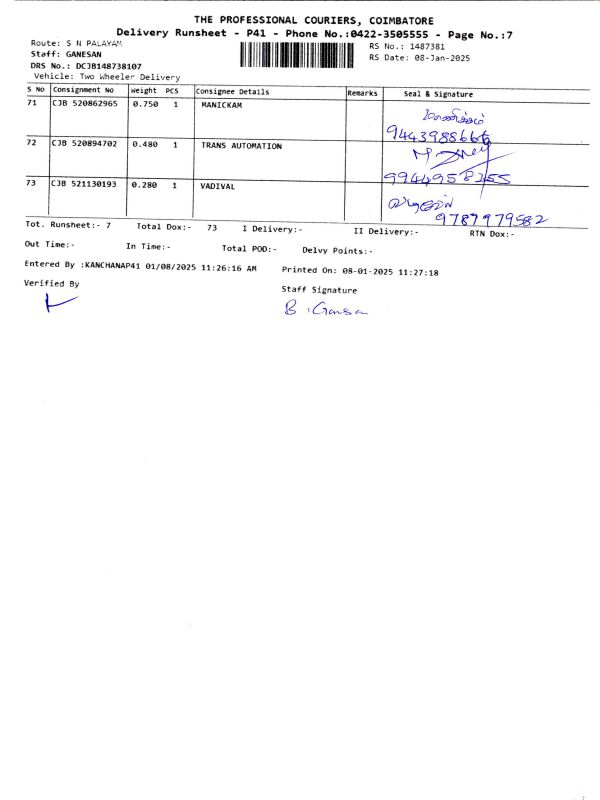 THE PROFESSIONAL COURIERS, COIMBATORE
Delivery Runsheet - P41 - Phone No.:0422-3505555 - Page No.:7
Route: S N PALAYAM
RS No.: 1487381
Staff: GANESAN
RS Date: 08-Jan-2025
DRS No.: DCJB148738107
Vehicle: Two Wheeler Delivery
S No Consignment No Weight PCS Consignee Details Remarks Seal & Signature
71 CJB 520862965 0.750 1 MANICKAM
72 CJB 520894702 0.480 1 TRANS AUTOMATION
9944958255
73 CJB 521130193 0.280 1 VADIVAL
9787979582
Tot. Runsheet:- 7 Total Dox:- 73 I Delivery:- II Delivery:- RTN Dox:-
Out Time:- In Time:- Total POD:- Delvy Points:-
Entered By :KANCHANAP41 01/08/2025 11:26:16 AM Printed On: 08-01-2025 11:27:18
Verified By
Staff Signature